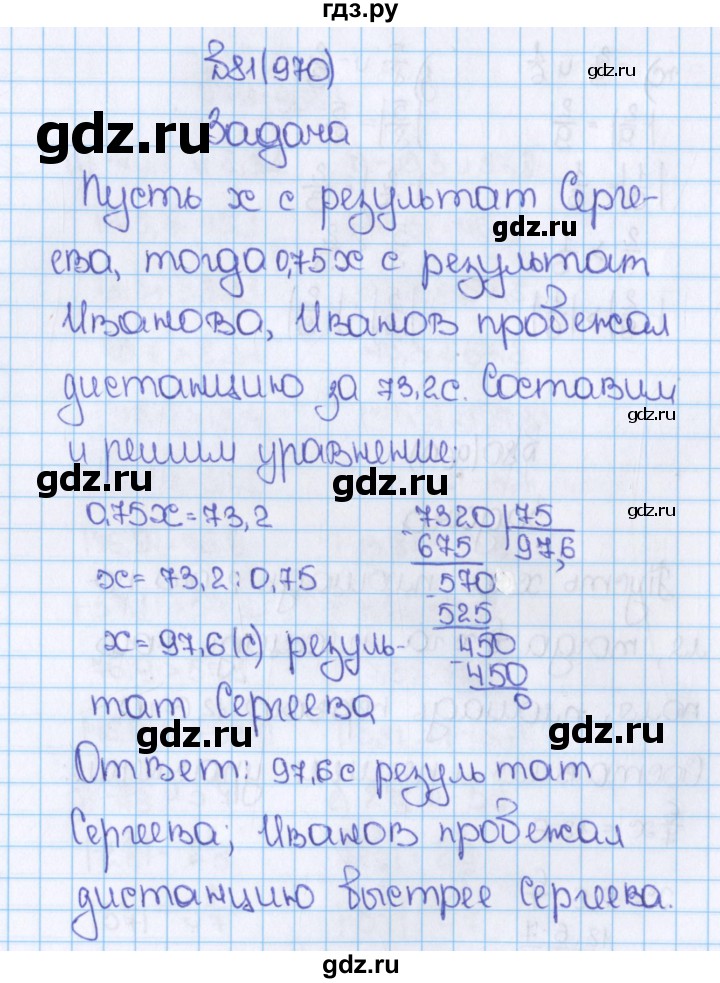 гдз.ру
В81(970)
gdz.ru
gdz.ru
Задача
Пусть x с результат Серге-
gdz.ru
ева, тогда 0,75x с результат
Иванова, Иванов пробежал
дистанцию за 73,2с. Составим
gdz.ru
и решим уравнение:
gdz.ru
gdz.ru
gdz.ru
0,75x=73,2
7320 75
- 675 97,6
x= 73,2:0,75
- 570
525
x=97,6(с) резуль-
- 450
450
0
тат Сергеева
gdz.ru
gdz.ru
Ответ: 97,6с результат
Сергеева; Иванов пробежал
дистанцию быстрее Сергеева.
gdz.ru